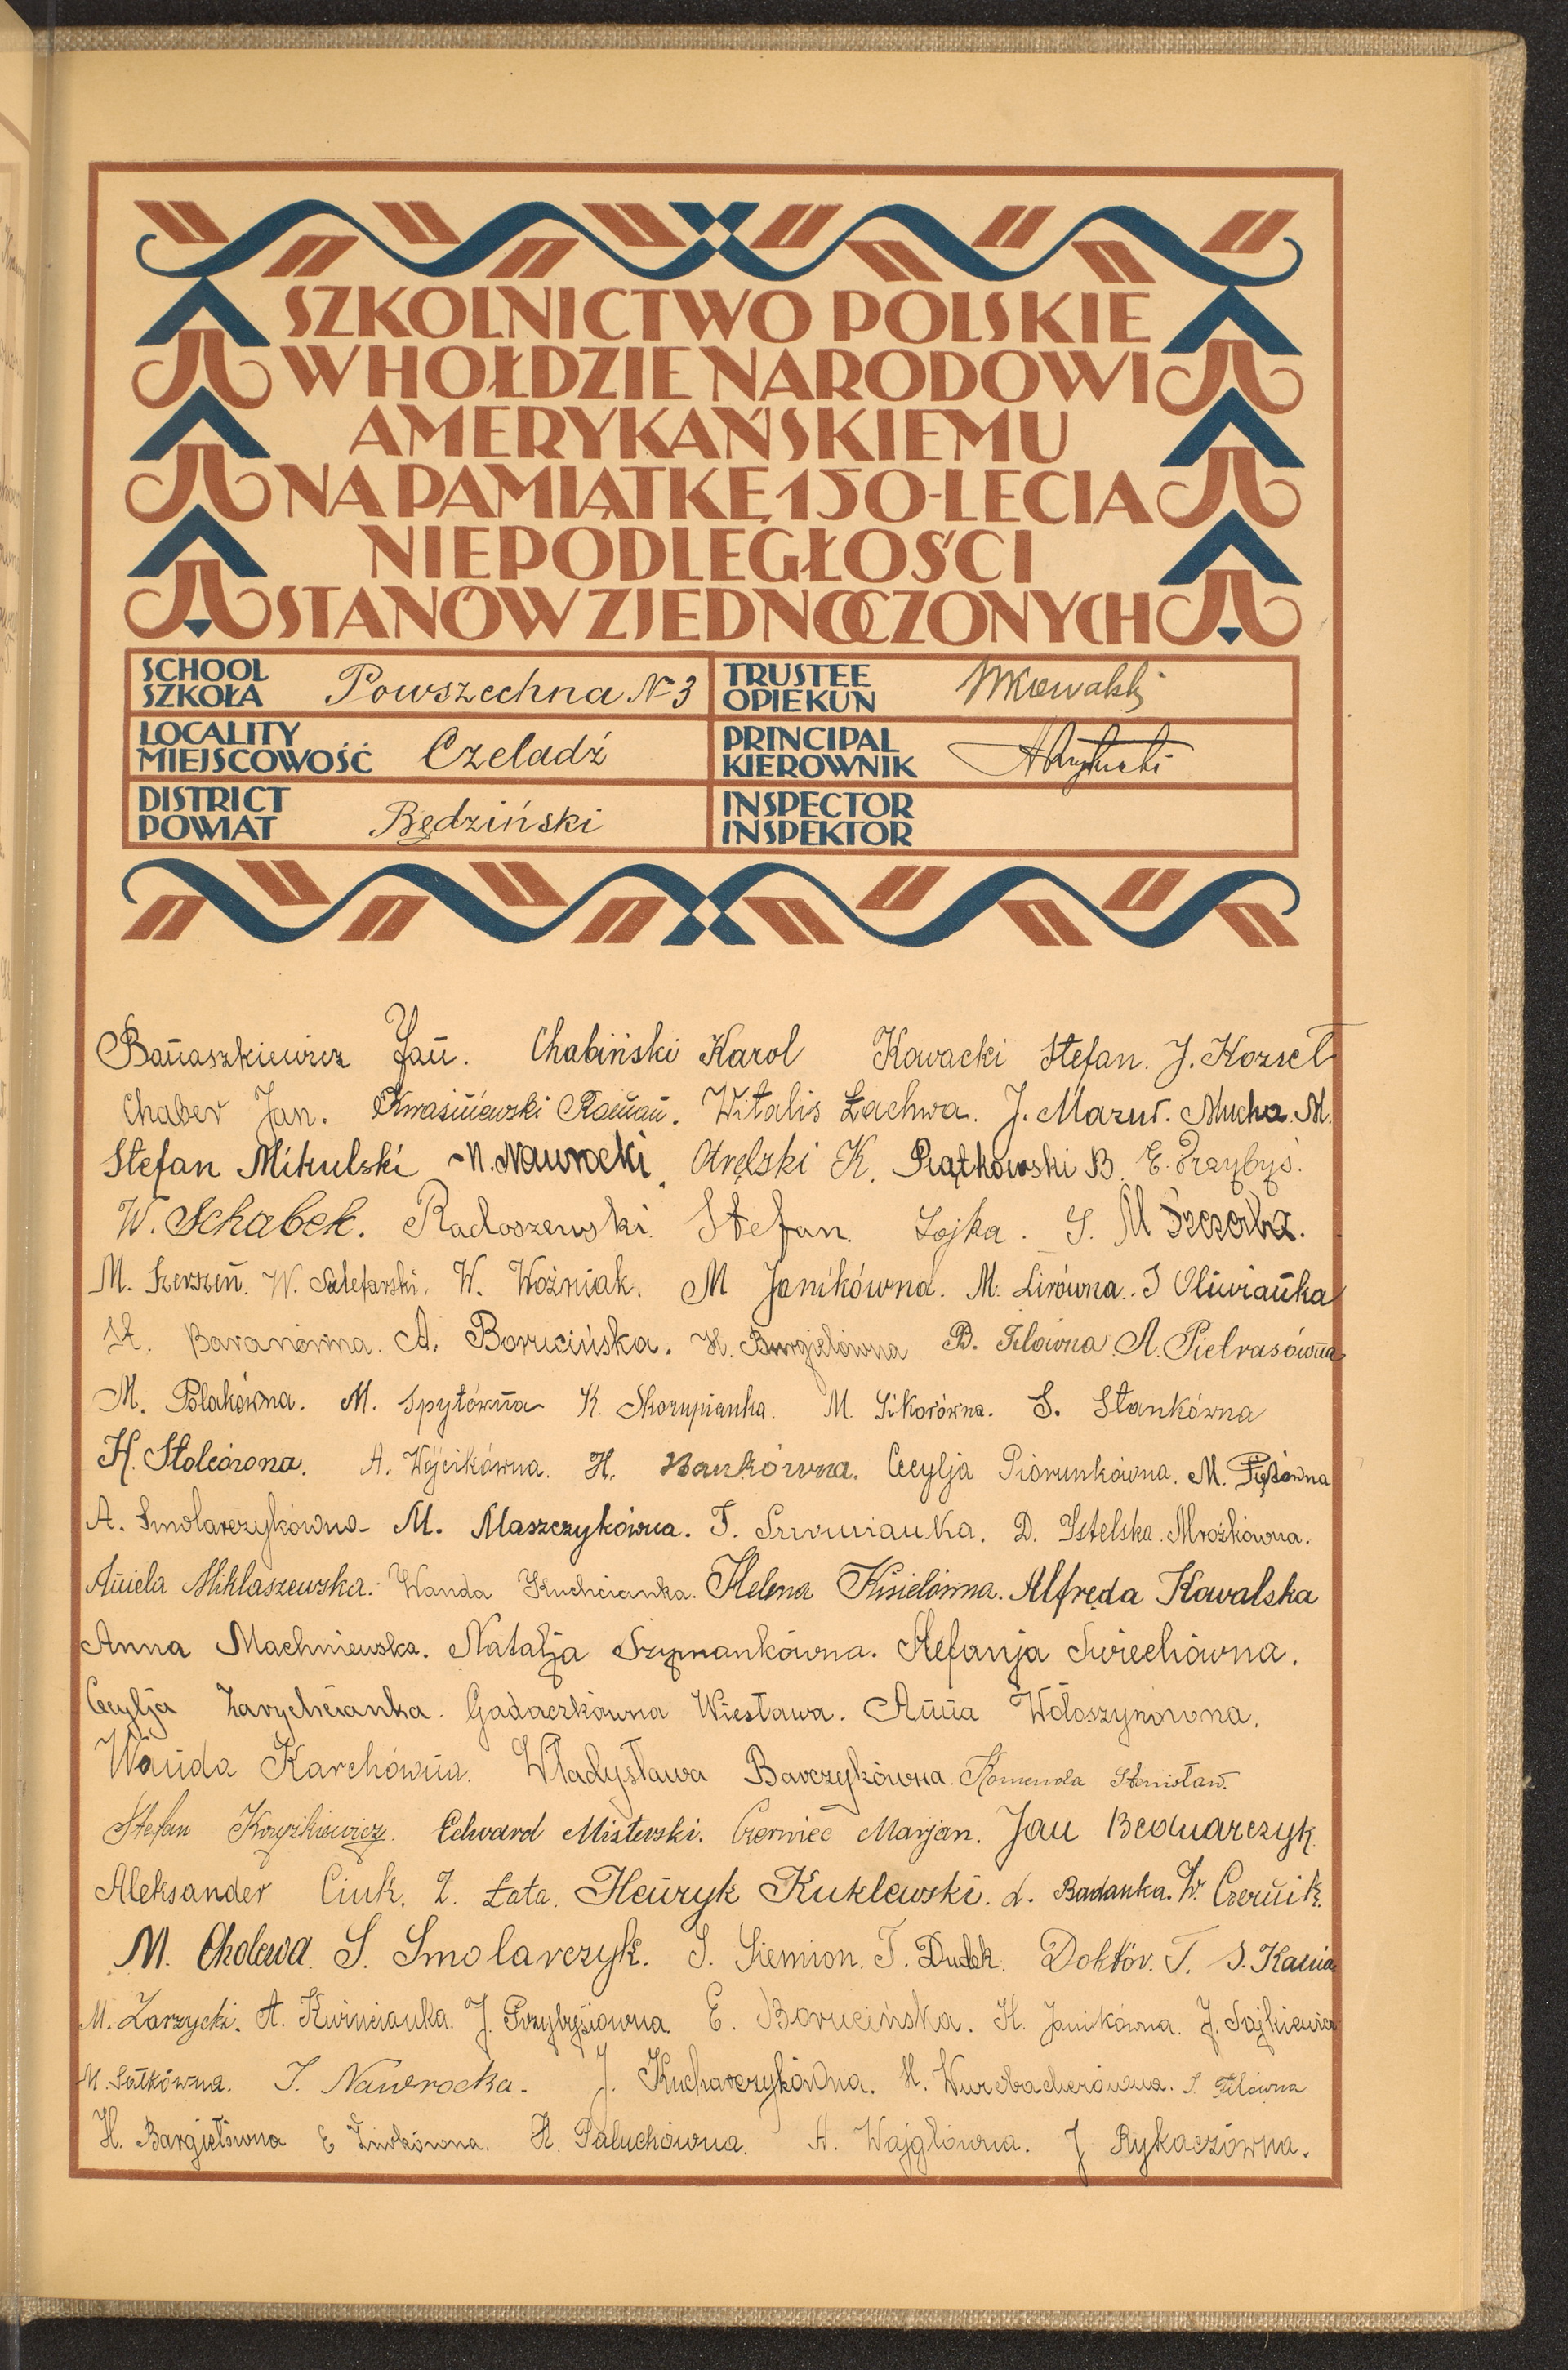 SZKOLNICTWO POLSKIE
W HOŁDZIE NARODOWI
AMERYKAŃSKIEMU
NA PAMIĄTKĘ 150-LECIA
NIEPODLEGŁOŚCI
STANÓW ZJEDNOCZONYCH
SCHOOL
SZKOŁA Powszechna № 3
TRUSTEE
OPIEKUN WKowalski
LOCALITY
MIEJSCOWOŚĆ Czeladź
PRINCIPAL
KIEROWNIK
DISTRICT
POWIAT Będziński
INSPECTOR
INSPEKTOR
Banaszkiewicz Jan. Chabiński Karol Kowacki Stefan. J. Kozieł
Chaber Jan. Kwaśniewski Roman. Witalis Łachwa. J. Mazur. Mucha M.
Stefan Mikulski M. Nawrocki. Otrębski K. Piątkowski B. E. Przybyś.
W. Schabek. Radoszewski Stefan. Łojka. S. M Szczerba.
M. Szerszeń. W. W. Woźniak. M Janikówna. M. Lirówna. J Oliwianka
H. Baranówna. A. Borucińska. H. Bargielówna B. Filówna A. Pietrasówna
M. Polakówna. M. Spytówna K. Skorupianka. M. Sikorówna. S. Stankówna
H. Stolcówna. A. Wójcikówna. H. Bankówna. Cecylja Piorunkówna. M.
A. Smolarczykówna M. Maszczykówna. T. D. Istelska. Mrożkówna.
Aniela Miklaszewska. Wanda Kuchcianka. Helena Kisielówna. Alfreda Kowalska
Anna Machniewska. Natalja Szymankówna. Stefanja Swiechówna.
Cecylja Zarychcianka. Gadaczkówna Wiesława. Anna Wołoszynówna.
Wanda Karchówna. Władysława Barczykówna. Komenda Stanisław.
Stefan Edward Misterski. Czerwiec Marjan. Jan Bednarczyk.
Aleksander Ciuk. Z. Łata. Henryk Kuklewski. L. Badanka. W. Czernik.
M. Cholewa. S. Smolarczyk. S. Siemion. T. Dudek. Doktór. T. S. Kania
M. Zarzycki. A. Kwincianka. J. Przybysiówna. E. Borucińska. H. Janikówna. J.
M. Sołkówna. J. Nawrocka. J. Kucharczykówna. H. Wurcbacherówna. J. Filówna
H. Bargiełówna E Żurkówna. H. Paluchówna. A. Wajgłówna. J Rykaczówna.